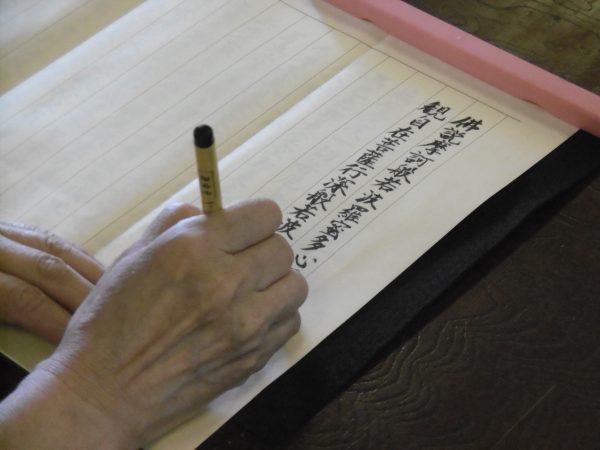 佛説摩訶般若波羅蜜多心
観自在菩薩行深般若波